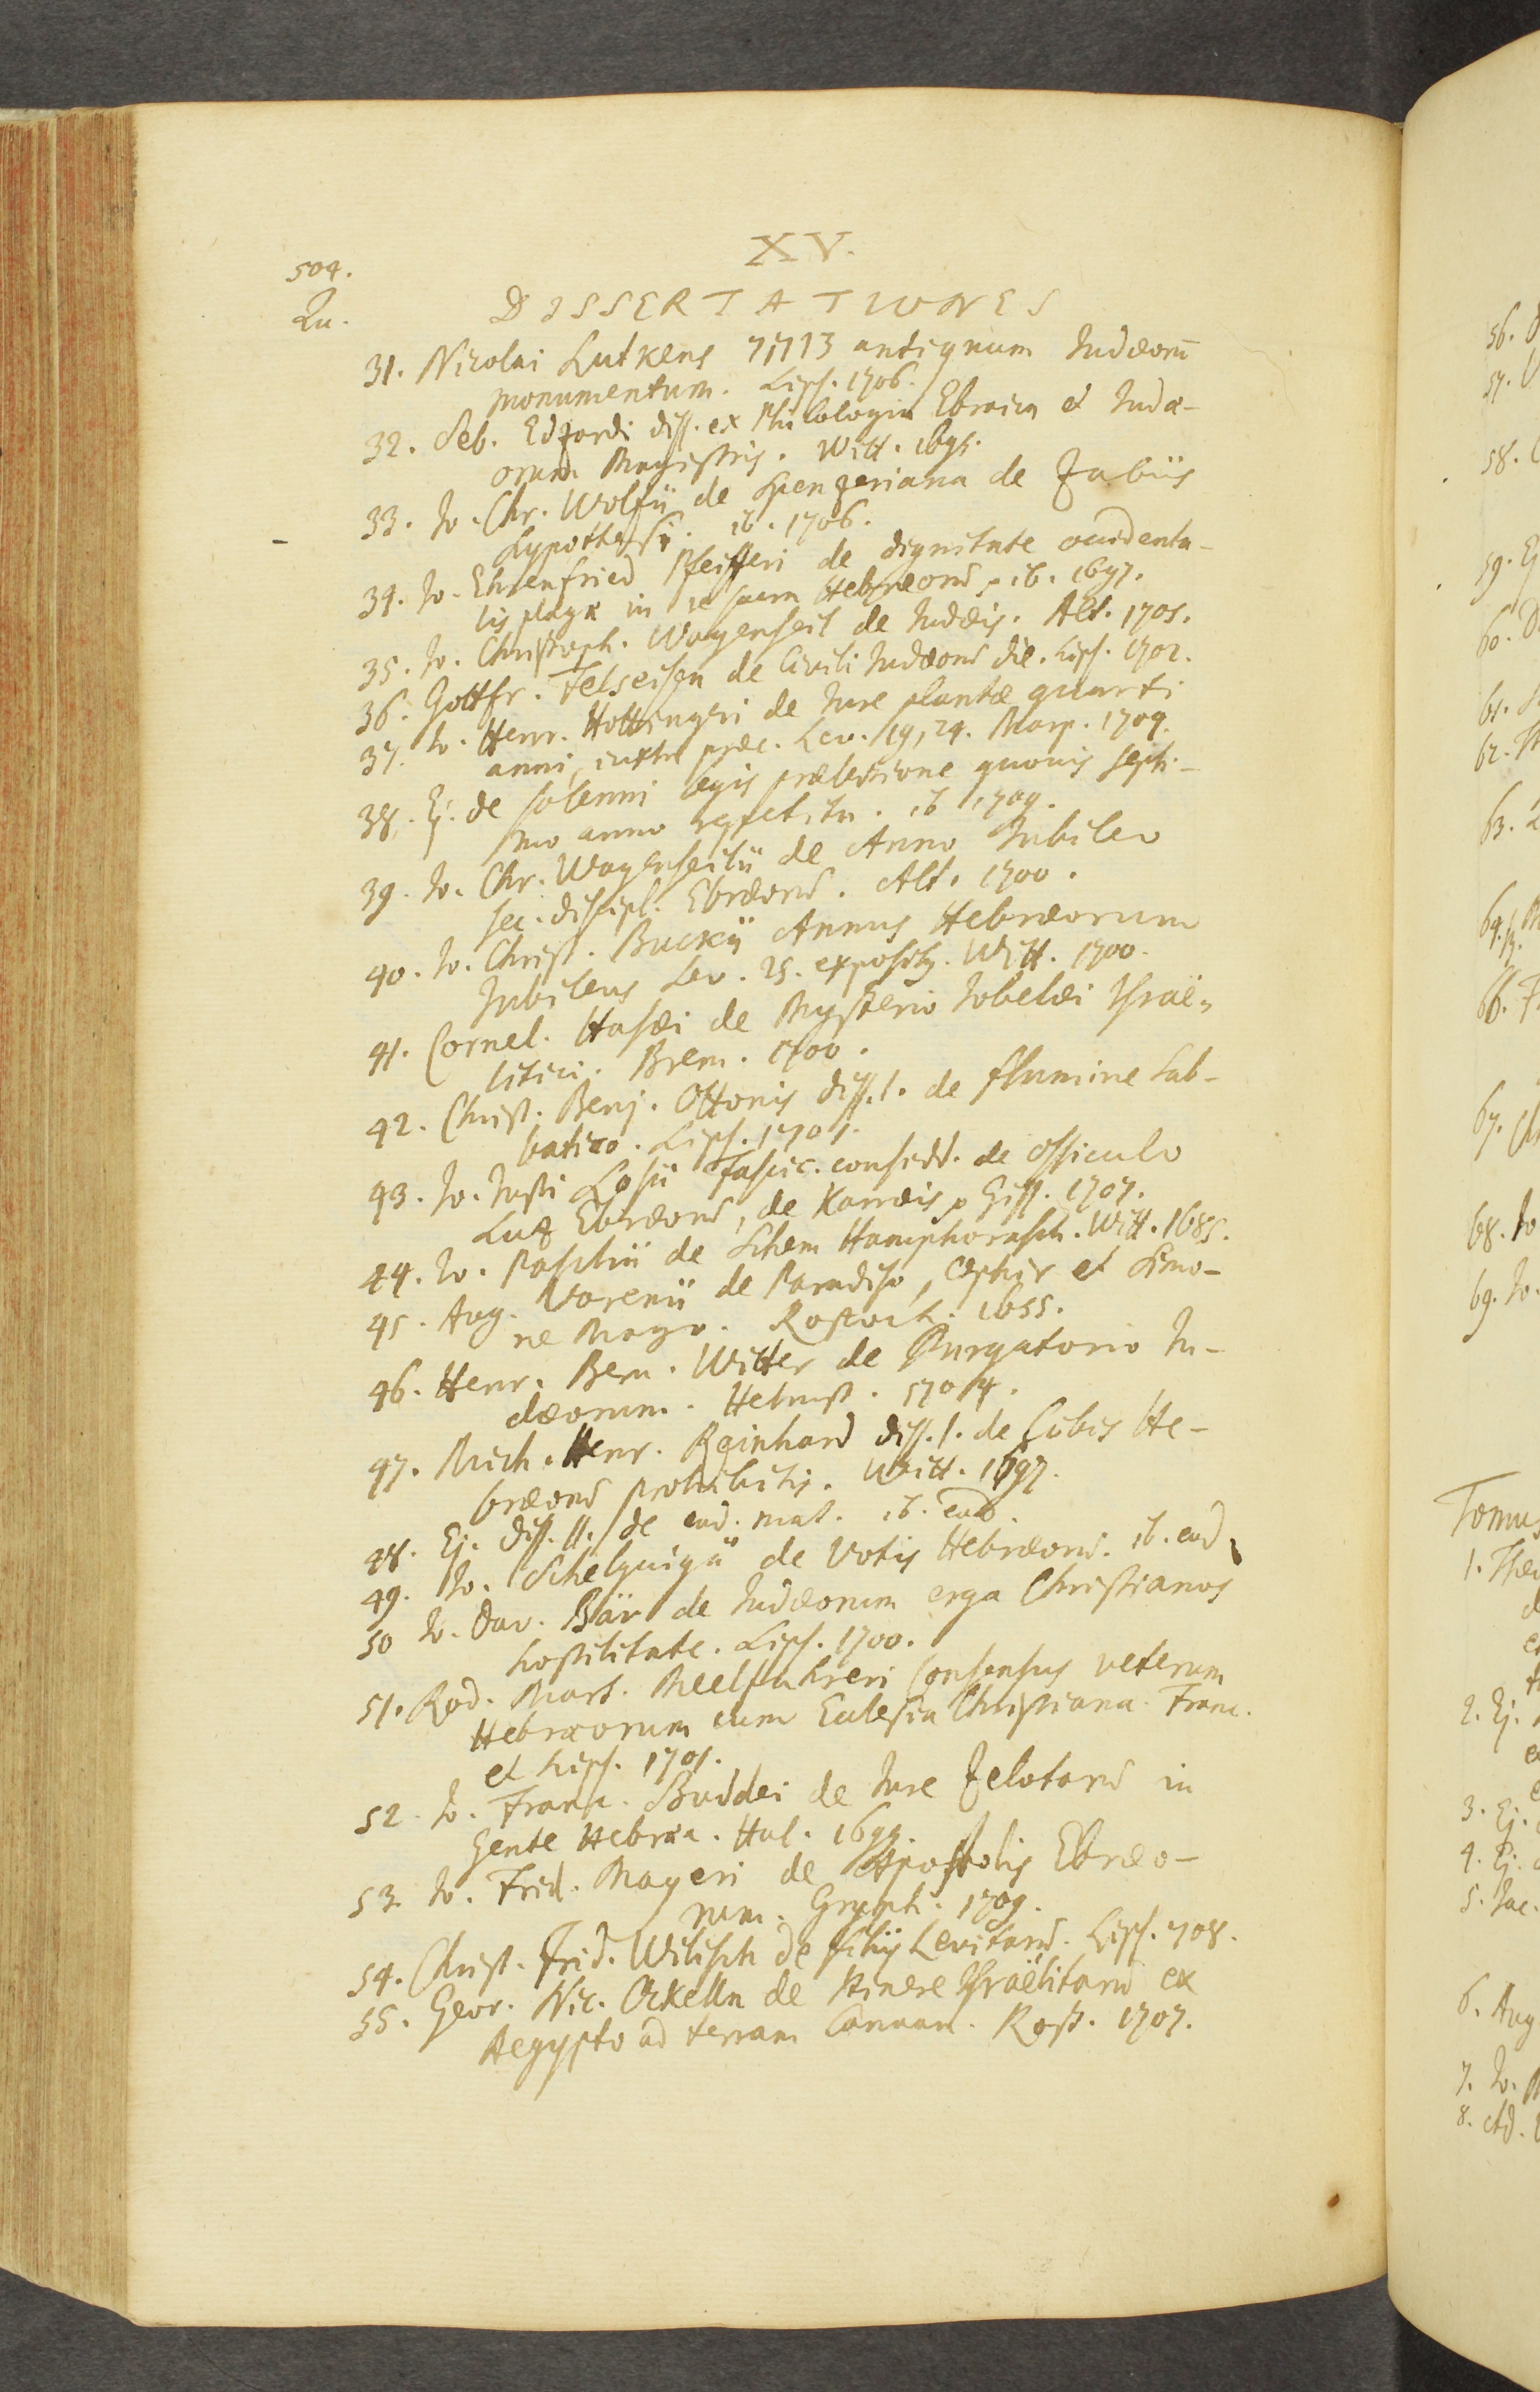 504.
XV.
Qu.
DISSERTATIONES
31. Nicolai Lutkens antiquum Judæorū
monumentum. Lips. 1706.
32. Seb. Edzardi diss. ex Philologia Ebraica et Judæ-
orum Magistris. Witt. 1695.
33. Jo. Chr. Wolfii de Zabiis
hypothesi. ib. 1706.
34. Jo. Ehrenfried Pfeifferi de dignitate occidenta-
lis plagæ in re sacra Hebræorum. ib. 1697.
35. Jo. Christoph. Wagenseil de Judæis. Alt. 1705.
36. Gottfr. Felseisen de Civili Judæorum die. Lips. 1702.
37. Jo. Henr. Hottingeri de Jure plantæ quarti
anni, iuxta præc. Lev. 19, 24. Marp. 1704.
38. Ej. de solenni legis prælectione quovis septi-
mo anno repetita. ib 1704.
39. Jo. Chr. Wagenseilii de Anno Jubileo
sec. discipl. Ebræorum. Alt. 1700.
40. Jo. Christ. Buckii Annus Hebræorum
Jubileus Lev. 25. expositus. Witt. 1700.
41. Cornel. Hasæi de Mysterio Jobelæi Israë-
litici. Brem. 1700.
42. Christ. Benj. Ottonis diss. I. de flumine Sab-
batico. Lips. 1701.
43. Jo. Justi Losii Fascic. considd. de ossiculo
Luz Ebræorum, de Karræis, Giss. 1707.
44. Jo. Paschii de Schem Hamphorasch. Witt. 1685.
45. Aug. Varenii de Paradiso, Ophir et Simo-
ne Mago. Rostoch. 1655.
46. Henr. Bern. Witter de Purgatorio Ju-
dæorum. Helmst. 1704.
47. Mich. Henr. Reinhard diss. I. de Cibis He-
bræorum prohibitis. Witt. 1697.
48. Ej. diss. II. de ead. mat. ib. eod.
49. Jo. Schelguigii de Votis Hebræorum. ib. eod.
50 Jo. Dav. Bär de Judæorum erga Christianos
hostilitate. Lips. 1700.
51. Rod. Mart. Meelfuhreri Consensus veterum
Hebræorum cum Eclesia Christiana. Franc.
et Lips. 1701.
52. Jo. Franc. Buddei de Jure Zelotarum in
Gente Hebræa. Hal. 1699.
53. Jo. Frid. Mayeri de Apostolis Ebræo-
rum. Gryph. 1709.
54. Christ. Frid. Wilisch de filiis Levitarum. Lips. 1708.
55. Geor. Nic. Ockelln de Itinere Israëlitarum ex
Aegypto ad terram Canaan. Rost. 1707.
56.
57.
58.
59.
60.
61.
62.
63.
66.
67.
68. Jo
69. Jo.
Tomus
1.
2. Ej.
3. Ej.
4. Ej.
5. Jac.
6. Aug
7. Jo.
8. Ad.